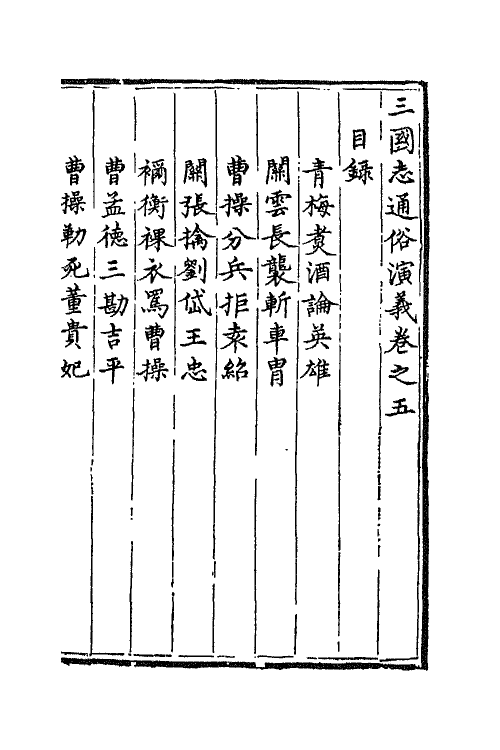 三國志通俗演義卷之五
目錄
青梅煑酒論英雄
關雲長襲斬車冑
曹操分兵拒袁紹
關張擒劉岱王忠
禰衡裸衣罵曹操
曹孟德三勘吉平
曹操勒死董貴妃